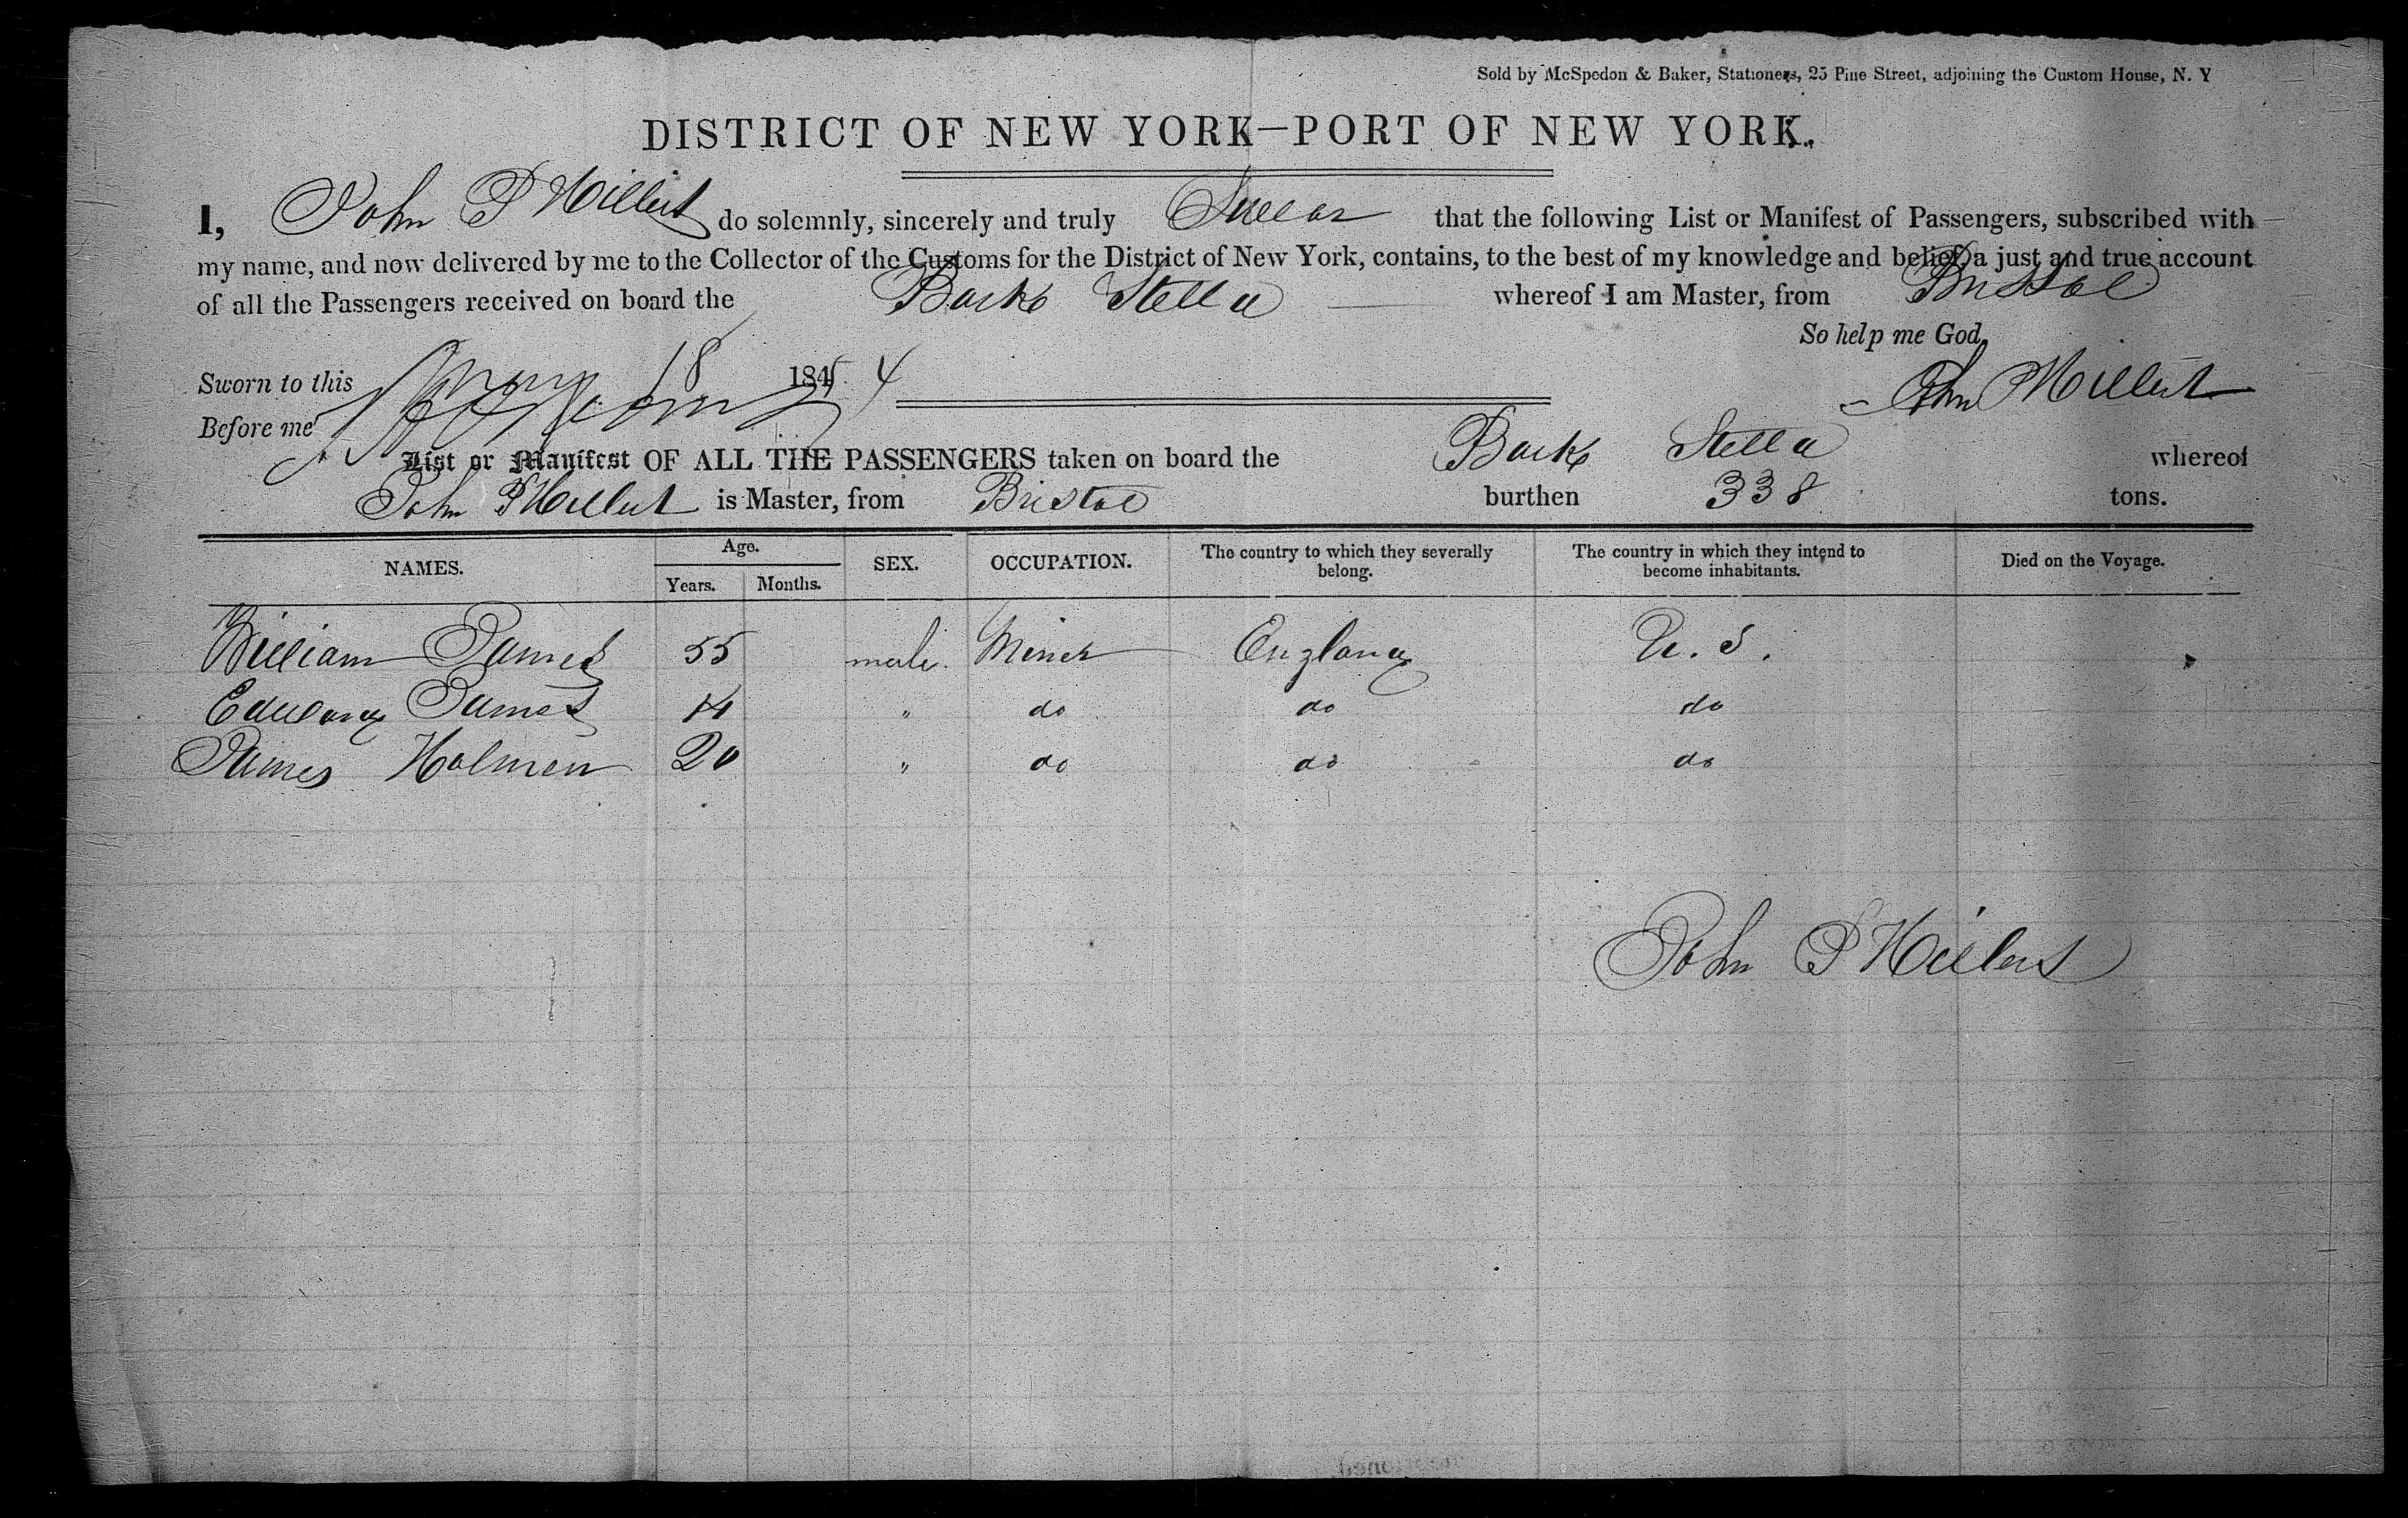 Sold by McSpedon & Baker, Stationers, 25 Pine Street, adjoining the Custom House, N. Y
DISTRICT OF NEW YORK—PORT OF NEW YORK.
I, John P Hillert do solemnly, sincerely and truly Swear that the following List or Manifest of Passengers, subscribed with
my name, and now delivered by me to the Collector of the Customs for the District of New York, contains, to the best of my knowledge and belief, a just and true account
of all the Passengers received on board the Bark Stella whereof I am Master, from Bristol
So help me God.
Sworn to this 18 1854
Before me
John Hillert
List or Manifest OF ALL THE PASSENGERS taken on board the Bark Stella whereof
John P Hillert is Master, from Bristol burthen 338 tons.
NAMES. Age. Years. Months. SEX. OCCUPATION. The country to which they severally belong. The country in which they intend to become inhabitants. Died on the Voyage.
William James 55 male. Miner England U. S.
Edward James 14 " do do do
James Holmen 20 " do do do
John P Hillert